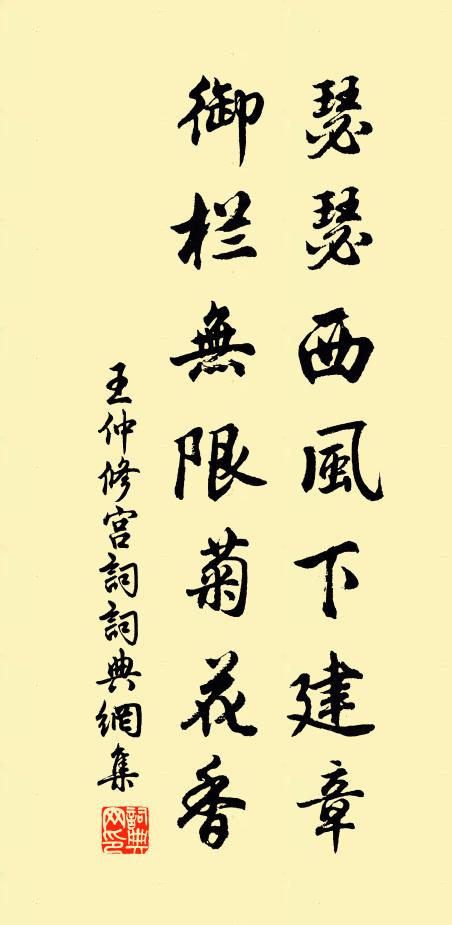 瑟瑟西風下建章
御栏無限菊花香
王仲修宫詞詞典網集
詞典网印